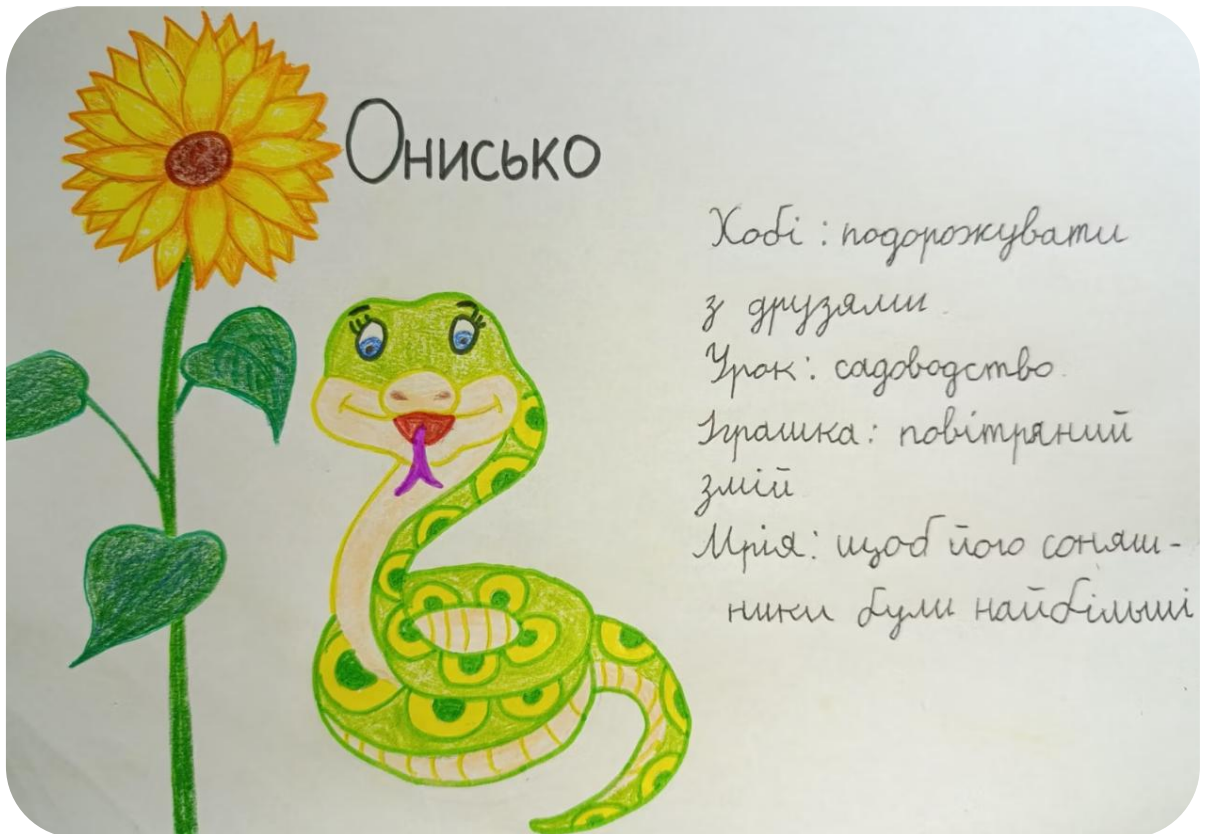 Онисько
Хобі: подорожувати
з друзями.
Урок: садоводство.
Іграшка: повітряний
змій
Мрія: щоб його соняш-
ники були найбільші